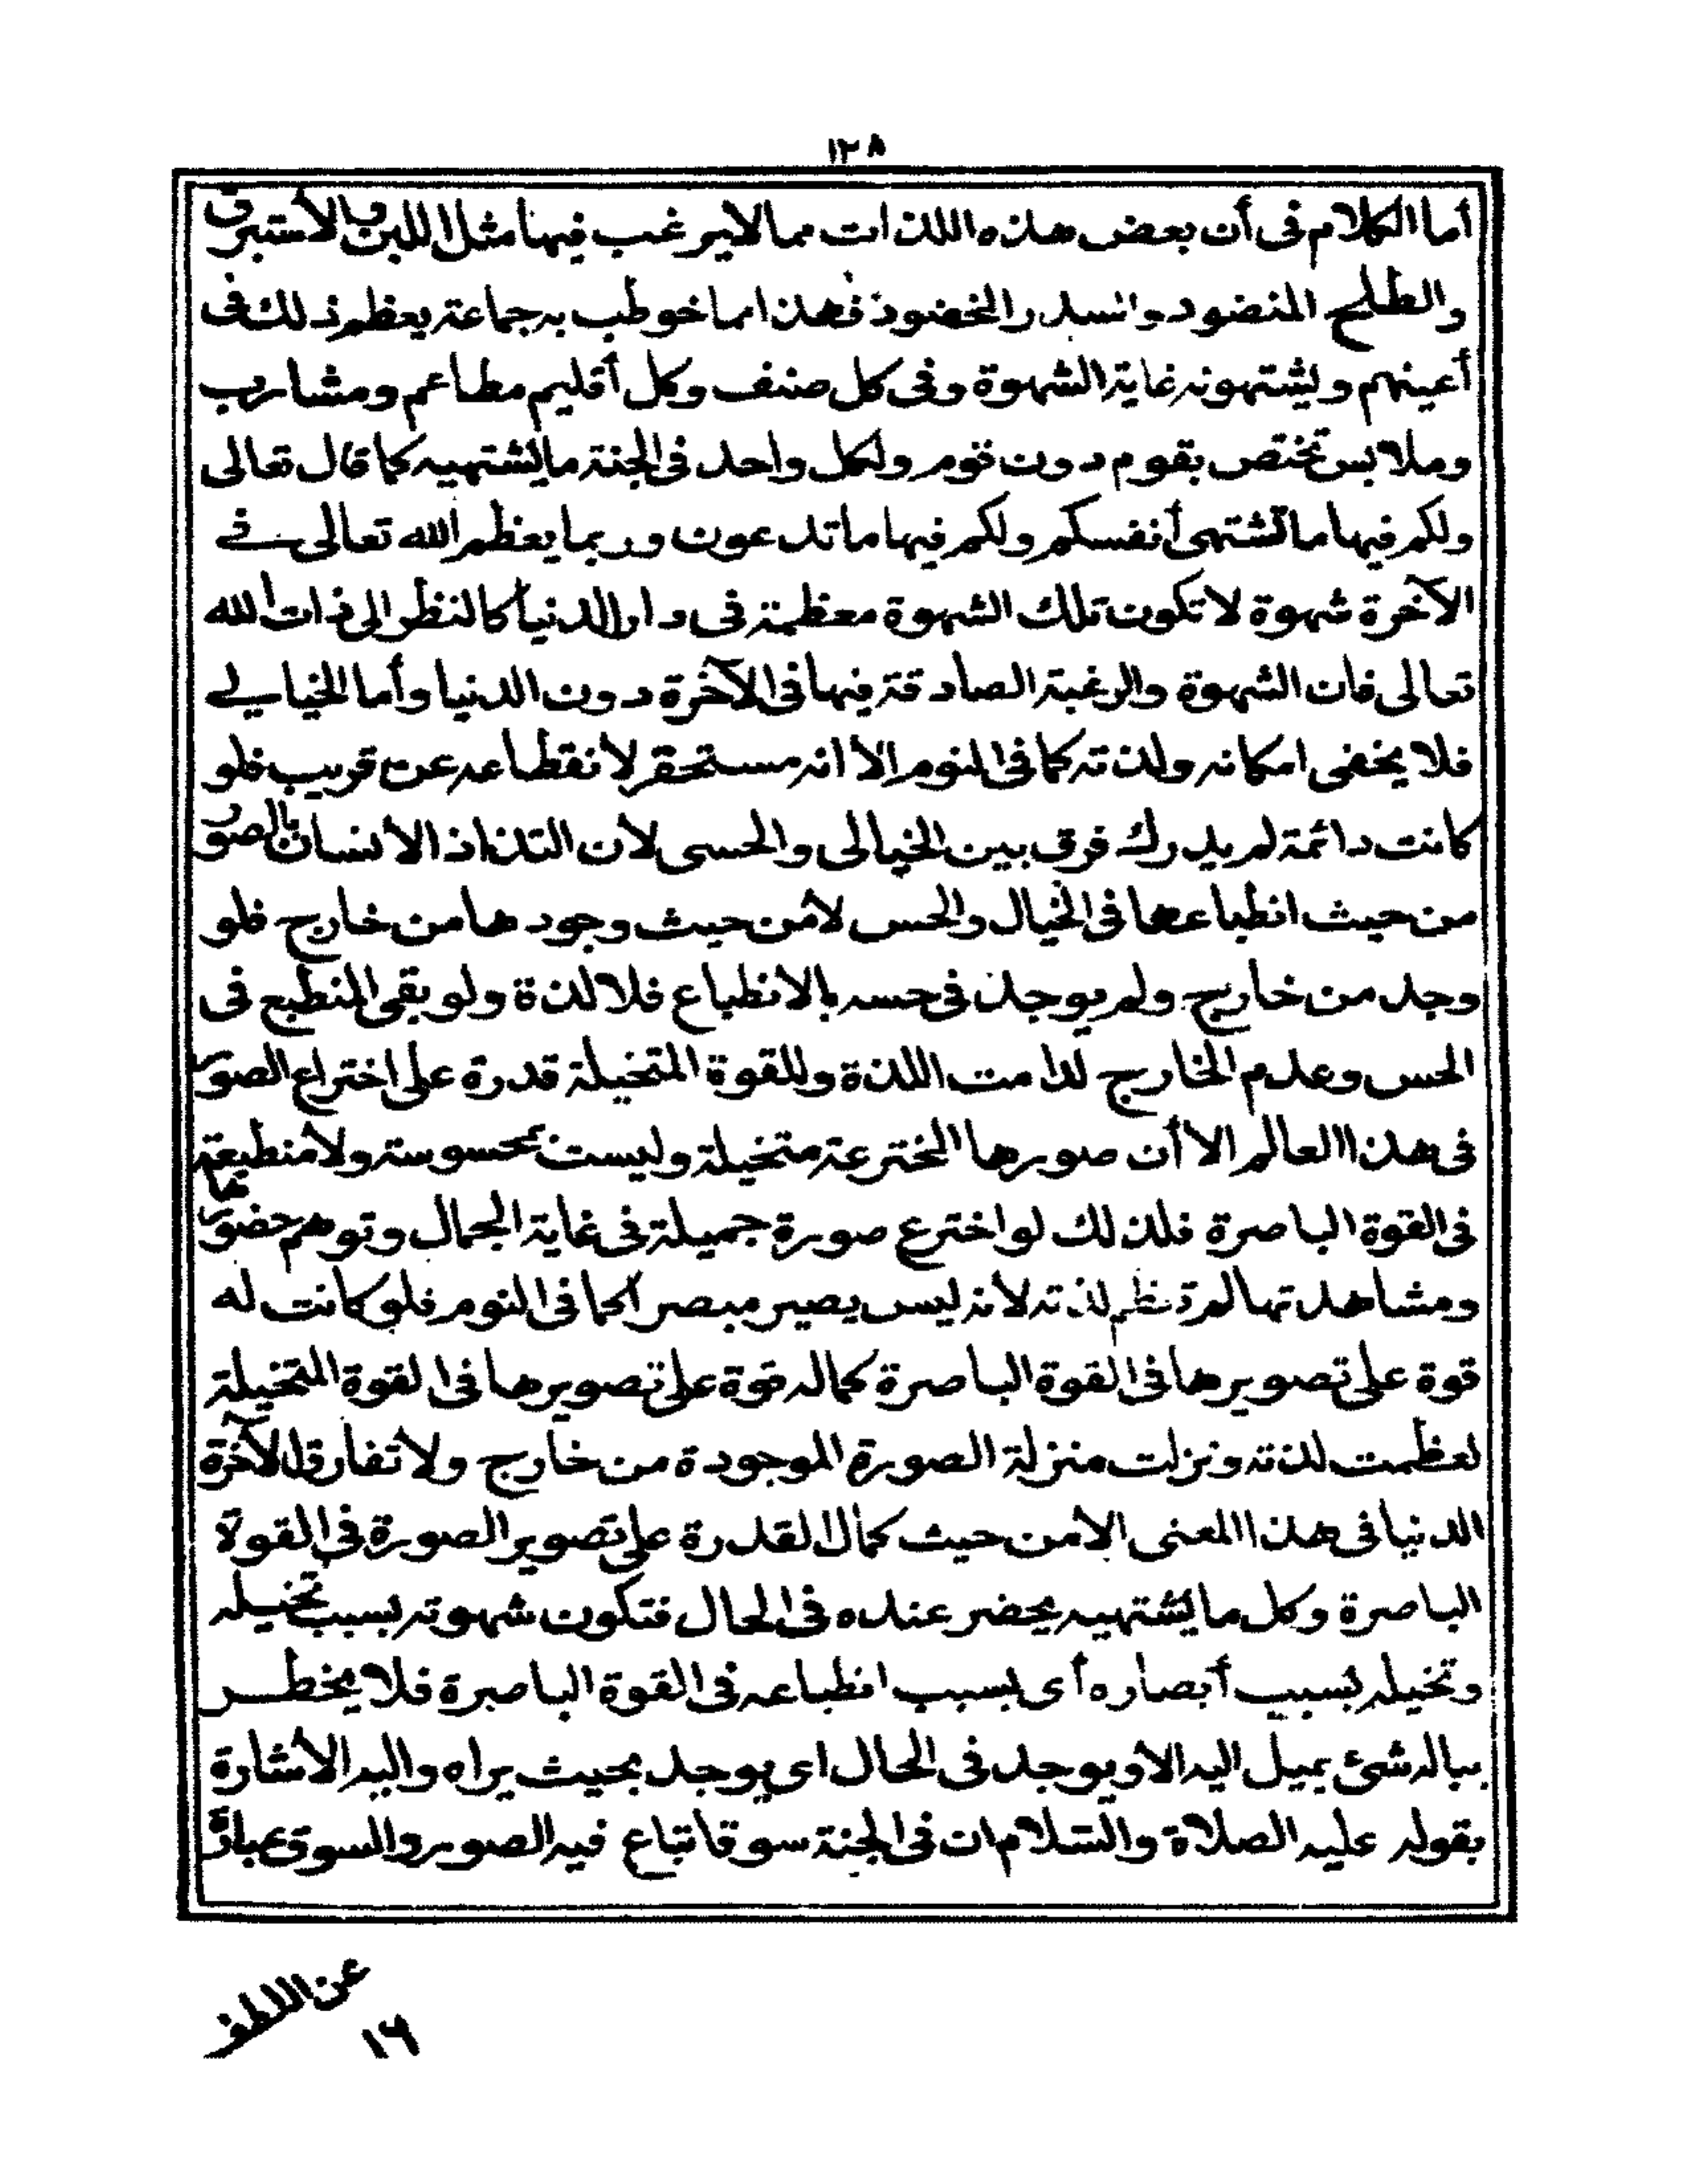 ١٢٨
أما الكلام فى أن بعض هذه اللذات مما لا يرغب فيها مثل اللبن والأستبرق
والطلح المنضود والسدر المخضود فهذا مما خوطب به جماعة يعظم ذلك فى
أعينهم ويشتهونه غاية الشهوة وفى كل صنف وكل أقليم مطاعم ومشارب
وملابس تختص بقوم دون قوم ولكل واحد فى الجنة ما يشتهيه كما قال تعالى
ولكم فيها ما تشتهى أنفسكم ولكم فيها ما تدعون وربما يعظم الله تعالى فى
الآخرة شهوة لا تكون تلك الشهوة معظمة فى دار الدنيا كالنظر الى ذات الله
تعالى فان الشهوة والرغبة الصادقة فيها فى الآخرة دون الدنيا وأما الخيالى
فلا يخفى امكانه ولذته كما فى النوم الا انه مستحقر لأنقطاعه عن قريب فلو
كانت دائمة لم يدرك فرق بين الخيالى والحسى لأن التذاذ الأنسان بالصور
من حيث انطباعها فى الخيال والحس لأمن حيث وجودها من خارج فلو
وجد من خارج ولم يوجد فى حسه بالأنطباع فلا لذة ولو بقى المنطبع فى
الحس وعدم الخارج لدامت اللذة وللقوة المتخيلة قدرة على اختراع الصور
فى هذا العالم الا أن صورها المخترعة متخيلة وليست بمحسوسة ولا منطبعة
فى القوة الباصرة فلذلك لو اخترع صورة جميلة فى غاية الجمال وتوهم حضورها
ومشاهدتها لم تعظم لذته لأنه ليس يصير مبصرا كما فى النوم فلو كانت له
قوة على تصويرها فى القوة الباصرة كماله قوة على تصويرها فى القوة المتخيلة
لعظمت لذته ونزلت منزلة الصورة الموجودة من خارج ولا تفارق الآخرة
الدنيا فى هذا المعنى الأمن حيث كمال القدرة على تصوير الصورة فى القوة
الباصرة وكل ما يشتهيه يحضر عنده فى الحال فتكون شهوته بسبب تخيله
وتخيله بسبب أبصاره أى بسبب انطباعه فى القوة الباصرة فلا يخطر
بباله شئ يميل اليه الأويوجد فى الحال اى يوجد بحيث يراه واليه الأشارة
بقوله عليه الصلاة والسلام ان فى الجنة سوقا تباع فيه الصور والسوق عبارة
عن اللطف
١٦